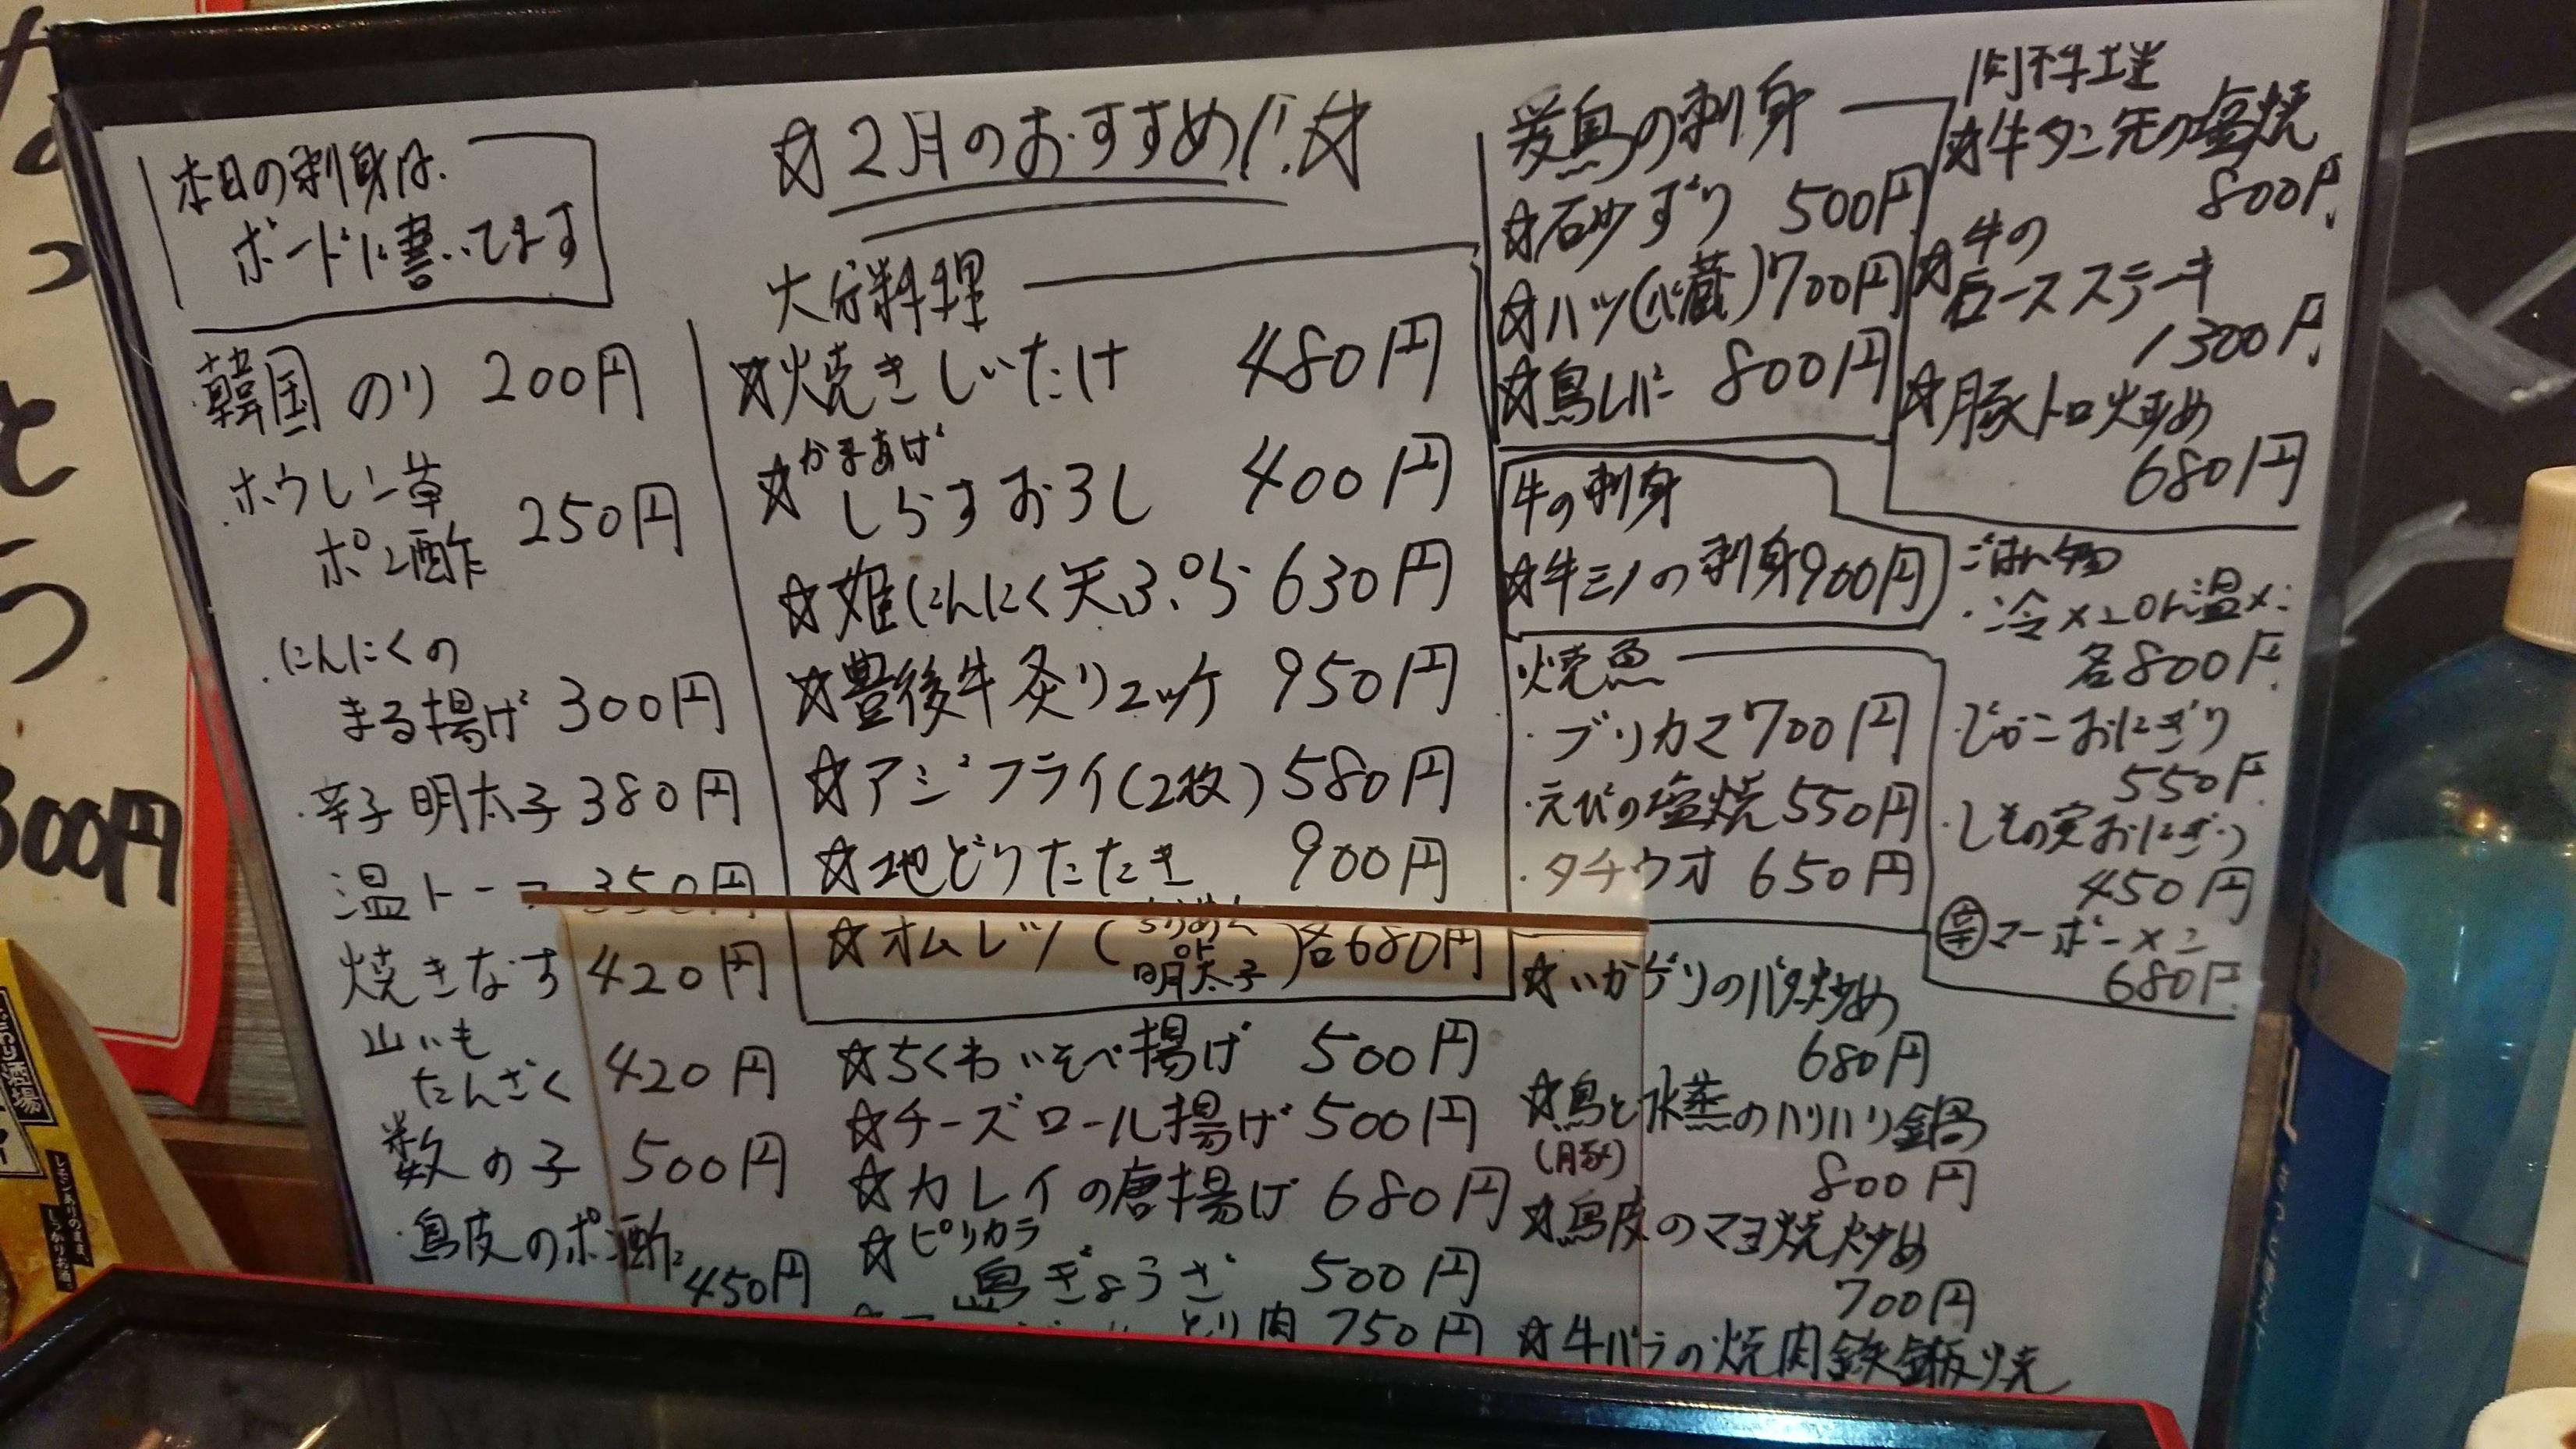 本日の刺身は
ボードに書いてます
韓国のり 200円
・ホウレン草
ポン酢 250円
・にんにくの
まる揚げ 300円
・辛子明太子 380円
温トーフ 350円
焼きなす 420円
山いも
たんざく 420円
数の子 500円
・鳥皮のポン酢
450円
☆2月のおすすめ!!☆
大分料理
☆焼きしいたけ 480円
☆かまあげ
しらすおろし 400円
☆姫にんにく天ぷら 630円
☆豊後牛炙りユッケ 950円
☆アジフライ(2枚) 580円
☆地どりたたき 900円
☆オムレツ(ちりめん
or
明太子)各680円
☆ちくわいそべ揚げ 500円
☆チーズロール揚げ 500円
☆カレイの唐揚げ 680円
☆ピリカラ
鳥ぎょうざ 500円
とり肉 750円
鳥の刺身
☆砂ずり 500円
☆ハツ(心蔵)700円
☆鳥レバー 800円
牛の刺身
☆牛ミノの刺身900円
焼魚
・ブリカマ700円
・えびの塩焼550円
・タチウオ 650円
☆いかゲソのバタ炒め
680円
☆鳥と水菜のハリハリ鍋
(豚)
800円
☆鳥皮のマヨ焼炒め
700円
☆牛バラの焼肉鉄板焼
肉料理
☆牛タン先の塩焼
800円
☆牛の
ロースステーキ
1300円
☆豚トロ炒め
680円
ごはん物
・冷メンor温メン
各800円
・じゃこおにぎり
550円
・しその実おにぎり
450円
辛マーボーメン
680円
300円